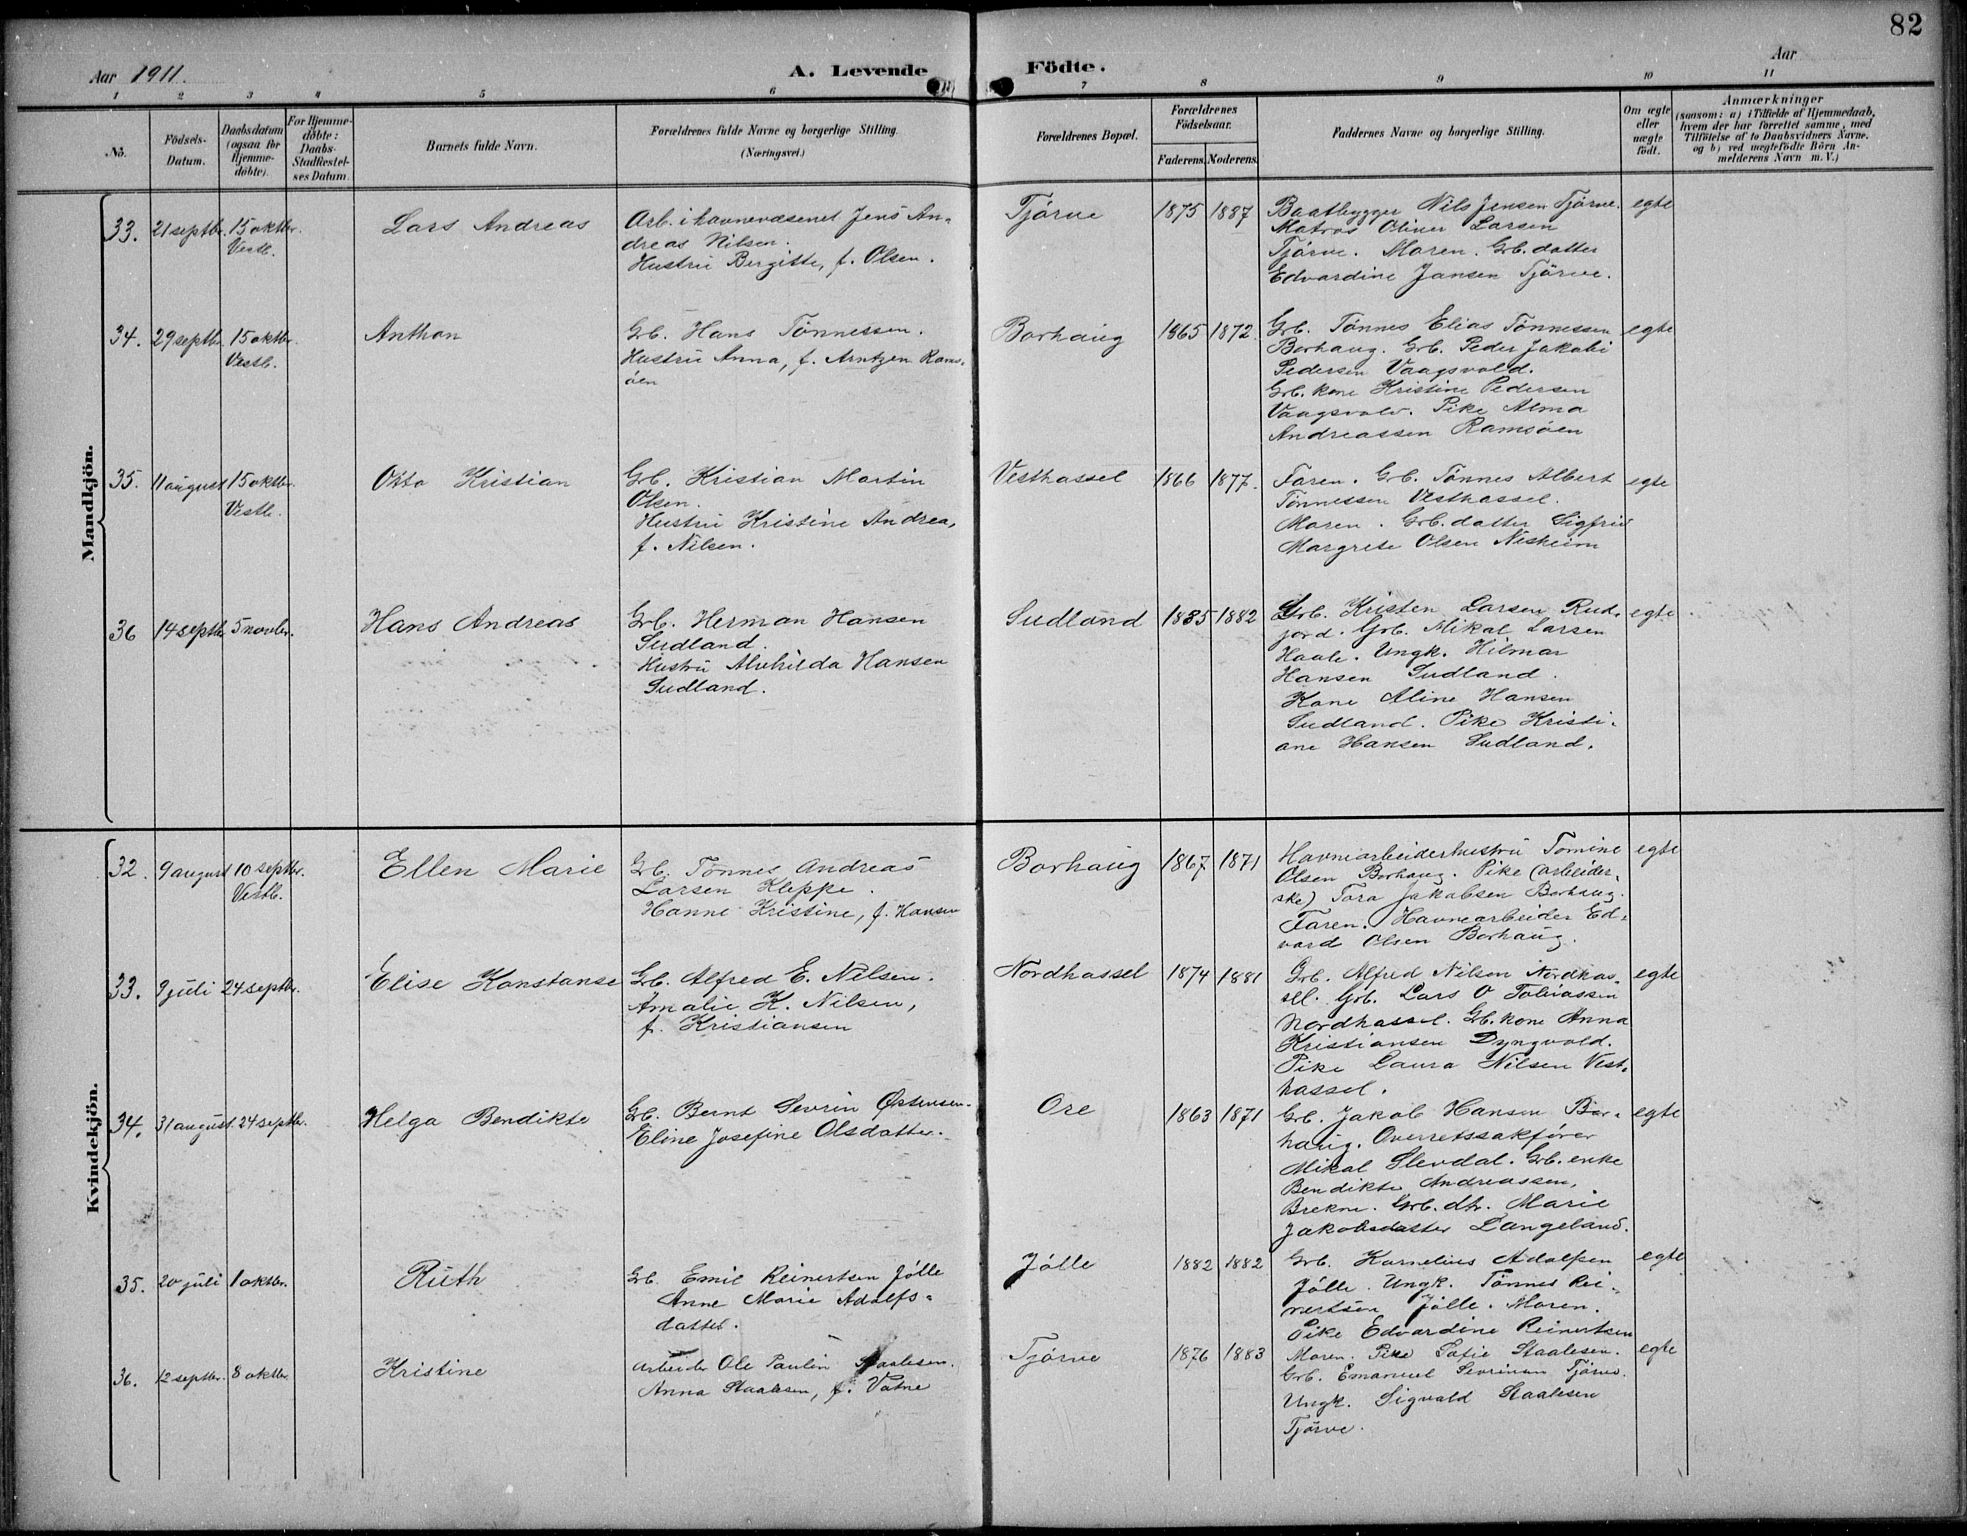 82
Aar 1911.
A. Levende Födte.
Aar
1 2 3 4 5 6 7 8 9 10 11
No.
Födsels-Datum.
Daabsdatum (ogsaa for Hjemme-döbte).
For Hjemme-döbte: Daabs-Stadfæstel-ses Datum.
Barnets fulde Navn.
Forældrenes fulde Navne og borgerlige Stilling.
(Næringsvei.)
Forældrenes Bopæl.
Forældrenes Födselsaar.
Faderens. Moderens.
Faddernes Navne og borgerlige Stilling.
Om ægte eller uægte födt.
Anmærkninger
(saasom: a) i Tilfælde af Hjemmedaab,
hvem der har forrettet samme, med
Tilföielse af to Daabsvidners Navne.
og b) ved uægtefödte Börn An-
melderens Navn m. V.)
Mandkjön.
33. 21 septbr. 15 oktbr. Vestb.
Lars Andreas
Arb. i havnevæsenet Jens An-
dreas Nilsen.
Hustru Bergitte, f. Olsen.
Tjörve
1875 1887
Baatbygger Nils Jensen Tjörve.
Matros Oliver Larsen
Tjörve. Moren. Grb. datter
Edvardine Jansen Tjörve.
egte
34. 29 septbr. 15 oktbr. Vestb.
Anthon
Grb. Hans Tönnessen.
Hustru Anna, f. Arntzen Rams-
öen
Borhaug
1865 1872.
Grb. Tönnes Elias Tönnessen
Borhaug. Grb. Peder Jakobi
Pedersen Vaagsvold.
Grb. kone Kristine Pedersen
Vaagsvold. Pike Alma
Andreassen Ramsöen
egte
35. 11 august 15 oktbr. Vestb.
Otto Kristian
Grb. Kristian Martin
Olsen.
Hustru Kristine Andrea,
f. Nilsen.
Vesthassel
1866 1877.
Faren. Grb. Tönnes Albert
Tönnessen Vesthassel.
Moren. Grb. datter Sigfrid
Margrete Olsen Nesheim
egte
36 14 septbr. 5 novbr.
Hans Andreas
Grb. Herman Hansen
Sudland.
Hustru Alvhilda Hansen
Sudland.
Sudland
1885 1882
Grb. Kristen Larsen Rud-
jord. Grb. Mikal Larsen
Haale. Ungk. Hilmar
Hansen Sudland.
Kone Aline Hansen
Sudland. Pike Kristi-
ane Hansen Sudland.
egte
Kvindekjön.
32. 9 august 10 septbr. Vestb.
Ellen Marie
Grb. Tönnes Andreas
Larsen Kleppe.
Hanne Kristine, f. Hansen
Borhaug
1867 1871
Havnearbeiderhustru Tomine
Olsen Borhaug. Pike (arbeider-
ske) Tora Jakobsen Borhaug.
Faren. Havnearbeider Ed-
vard Olsen Borhaug.
egte
33. 9 juli 24 septbr.
Elise Konstanse
Grb. Alfred E. Nilsen.
Amalie K. Nilsen,
f. Kristiansen
Nordhassel
1874 1881
Grb. Alfred Nilsen Nordhas-
sel. Grb. Lars O Tobiassen
Nordhassel. Grb. kone Anna
Kristiansen Dyngvold.
Pike Laura Nilsen Vest-
hassel.
egte
34. 31 august. 24 septbr.
Helga Bendikte
Grb. Bernt Sevrin Östensen.
Eline Josefine Olsdatter.
Ore
1863 1871
Grb. Jakob Hansen Bor-
haug. Overretssakförer
Mikal Slevdal. Grb. enke
Bendikte Andreassen,
Brekne. Grb. dtr. Marie
Jakobsdatter Langeland.
egte
35. 20 juli 1 oktbr.
Ruth
Grb. Emil Reinertsen Jölle
Anne Marie Adolfs-
datter.
Jölle
1882 1882
Grb. Kornelius Adolfsen
Jölle. Ungk. Tönnes Rei-
nertsen Jölle. Moren.
Pike Edvardine Reinertsen
egte
36. 12 septbr. 8 oktbr.
Kristine
Arbeider Ole Paulin Staalesen.
Anna Staalesen, f. Vatne
Tjörve
1876 1883
Moren. Pike Sofie Staalesen.
Grb. Emanuel Severinsen Tjörve.
Ungk. Sigvald Staalesen
Tjörve.
egte